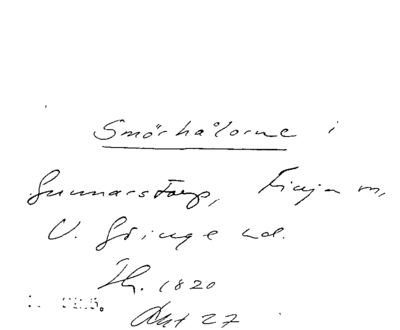 Smörhålorne i
Gunnarstorp, Finja sn,
V. Göinge hd.
Th. 1820
Akt 27